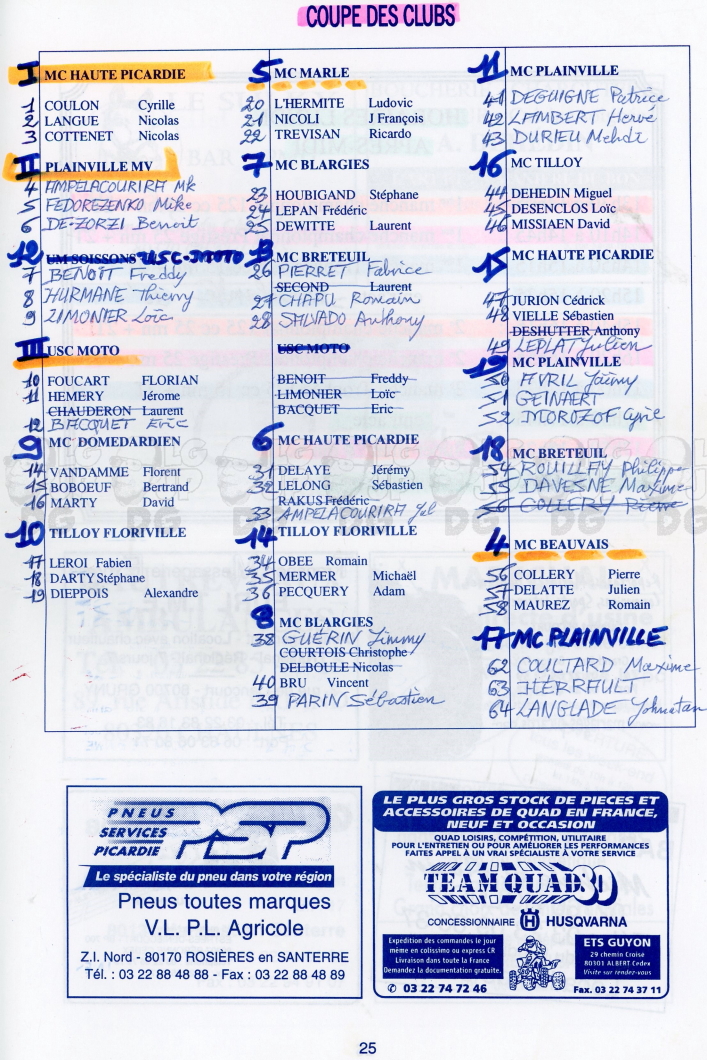 COUPE DES CLUBS
I MC HAUTE PICARDIE
1 COULON Cyrille
2 LANGUE Nicolas
3 COTTENET Nicolas
II PLAINVILLE MV
4 AMPELACOURIRA Mk
5 FEDOREZENKO Mike
6 DE-ZORZI Benoit
12 UM SOISSONS USC-MOTO
7 BENOÎT Freddy
8 HURMANE Thierry
9 LIMONIER Loïc
III USC MOTO
10 FOUCART FLORIAN
11 HEMERY Jérome
CHAUDERON Laurent
12 BACQUET Eric
9 MC DOMEDARDIEN
14 VANDAMME Florent
15 BOBOEUF Bertrand
16 MARTY David
10 TILLOY FLORIVILLE
17 LEROI Fabien
18 DARTY Stéphane
19 DIEPPOIS Alexandre
5 MC MARLE
20 L'HERMITE Ludovic
21 NICOLI J François
22 TREVISAN Ricardo
7 MC BLARGIES
23 HOUBIGAND Stéphane
24 LEPAN Frédéric
25 DEWITTE Laurent
13 MC BRETEUIL
26 PIERRET Fabrice
SECOND Laurent
27 CHAPU Romain
28 SALVADO Anthony
USC MOTO
BENOIT Freddy
LIMONIER Loïc
BACQUET Eric
6 MC HAUTE PICARDIE
31 DELAYE Jérémy
32 LELONG Sébastien
RAKUS Frédéric
33 AMPELACOURIRA
14 TILLOY FLORIVILLE
34 OBEE Romain
35 MERMER Michaël
36 PECQUERY Adam
8 MC BLARGIES
38 GUÉRIN Jimmy
COURTOIS Christophe
DELBOULE Nicolas
40 BRU Vincent
39 PARIN Sébastien
11 MC PLAINVILLE
41 DEGUIGNE Patrice
42 LAMBERT Hervé
43 DURIEU Mehdi
16 MC TILLOY
44 DEHEDIN Miguel
45 DESENCLOS Loïc
46 MISSIAEN David
15 MC HAUTE PICARDIE
47 JURION Cédrick
48 VIELLE Sébastien
DESHUTTER Anthony
49 LEPLAT Julien
19 MC PLAINVILLE
50 AVRIL Jérémy
51 GEINAERT
52 MOROZOF Cyril
18 MC BRETEUIL
54 ROUILLAY Philippe
55 DAVESNE Maxime
56 COLLERY Pierre
4 MC BEAUVAIS
56 COLLERY Pierre
57 DELATTE Julien
58 MAUREZ Romain
17 MC PLAINVILLE
62 COULTARD Maxime
63 HERRAULT
64 LANGLADE Johnatan
PNEUS
SERVICES
PICARDIE
PSP
Le spécialiste du pneu dans votre région
Pneus toutes marques
V.L. P.L. Agricole
Z.I. Nord - 80170 ROSIÈRES en SANTERRE
Tél. : 03 22 88 48 88 - Fax : 03 22 88 48 89
LE PLUS GROS STOCK DE PIECES ET
ACCESSOIRES DE QUAD EN FRANCE,
NEUF ET OCCASION
QUAD LOISIRS, COMPÉTITION, UTILITAIRE
POUR L'ENTRETIEN OU POUR AMÉLIORER LES PERFORMANCES
FAITES APPEL À UN VRAI SPÉCIALISTE À VOTRE SERVICE
TEAM QUAD 80
CONCESSIONNAIRE HUSQVARNA
Expedition des commandes le jour
même en colissimo ou express CR
Livraison dans toute la France
Demandez la documentation gratuite.
✆ 03 22 74 72 46
ETS GUYON
29 chemin Croise
80301 ALBERT Cedex
Visite sur rendez-vous
Fax. 03 22 74 37 11
25